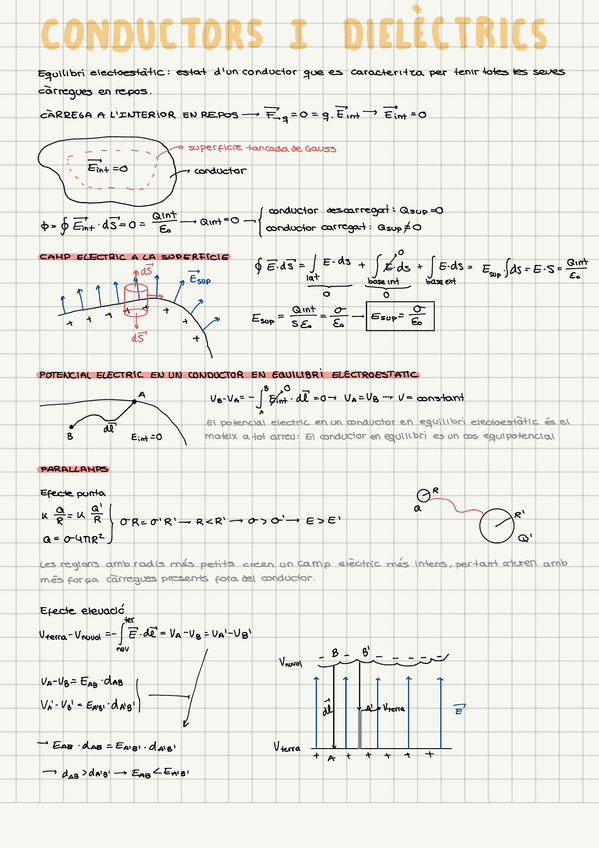 CONDUCTORS I DIELÈCTRICS
Equilibri electroestàtic: estat d'un conductor que es caracteritza per tenir totes les seves
càrregues en repos.
CÀRREGA A L'INTERIOR EN REPOS → F→q = 0 = q · E→int → E→int = 0
superfície tancada de Gauss
E→int = 0
conductor
ϕ = ∮ E→int · dS→ = 0 = Qint/ε₀ → Qint = 0 → { conductor descarregat: Qsup = 0
conductor carregat: Qsup ≠ 0
CAMP ELECTRIC A LA SUPERFÍCIE
dS→
E→sup
+ + + + + + +
dS→
∮ E→ · dS→ = ∫lat E · ds + ∫base int E · ds + ∫base ext E · ds = Esup ∫ ds = E · S = Qint/ε₀
0
0 0
Esup = Qint/Sε₀ = σ/ε₀ → Esup = σ/ε₀
POTENCIAL ELECTRIC EN UN CONDUCTOR EN EQUILIBRI ELECTROESTATIC
A
B
dl→
Eint = 0
VB - VA = - ∫A B E→int · dl→ = 0 → VA = VB → V = constant
0
El potencial electric en un conductor en equilibri electroestàtic és el
mateix a tot arreu: El conductor en equilibri es un cos equipotencial
PARALLAMPS
Efecte punta
K Q/R = K Q'/R'
Q = σ · 4πR²
σR = σ'R' → R < R' → σ > σ' → E > E'
R
Q
R'
Q'
Les regions amb radis més petits creen un camp elèctric més intens, per tant aturen amb
més força càrregues presents fora del conductor.
Efecte elevació
Vterra - Vnuvol = - ∫nuv ter E→ · dl→ = VA - VB = VA' - VB'
VA - VB = EAB · dAB
VA' - VB' = EA'B' · dA'B'
→ EAB · dAB = EA'B' · dA'B'
→ dAB > dA'B' → EAB < EA'B'
Vnuvol
- B - B' - - - - - -
dl→
A'
Vterra
E→
Vterra
+ A + + + + +